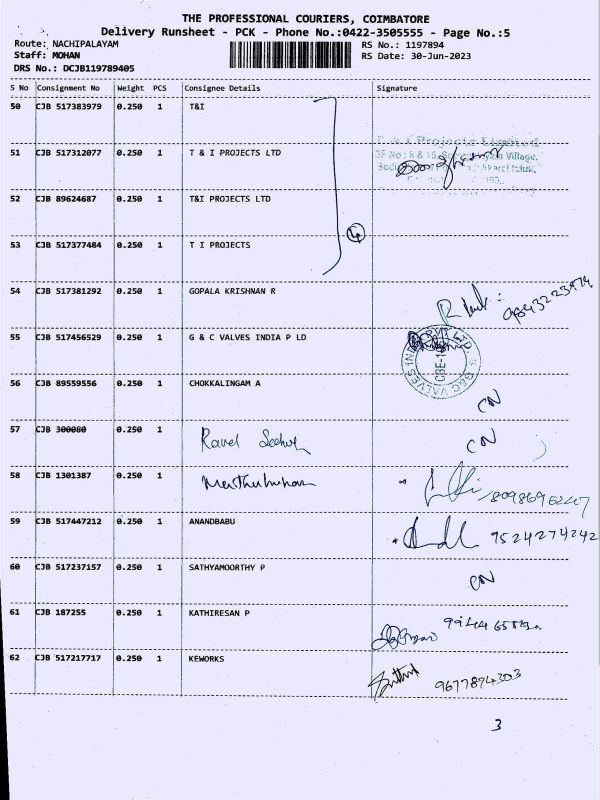 THE PROFESSIONAL COURIERS, COIMBATORE
Delivery Runsheet - PCK - Phone No.:0422-3505555 - Page No.:5
Route: NACHIPALAYAM RS No.: 1197894
Staff: MOHAN RS Date: 30-Jun-2023
DRS No.: DCJB119789405
S No Consignment No Weight PCS Consignee Details Signature
50 CJB 517383979 0.250 1 T&I
T & I Projects Limited
51 CJB 517312077 0.250 1 T & I PROJECTS LTD
Village,
52 CJB 89624687 0.250 1 T&I PROJECTS LTD
4
53 CJB 517377484 0.250 1 T I PROJECTS
54 CJB 517381292 0.250 1 GOPALA KRISHNAN R
55 CJB 517456529 0.250 1 G & C VALVES INDIA P LD
56 CJB 89559556 0.250 1 CHOKKALINGAM A
CN
57 CJB 300080 0.250 1 CN
58 CJB 1301387 0.250 1
59 CJB 517447212 0.250 1 ANANDBABU 9524274242
60 CJB 517237157 0.250 1 SATHYAMOORTHY P CN
61 CJB 187255 0.250 1 KATHIRESAN P
62 CJB 517217717 0.250 1 KEWORKS
9677894303
3